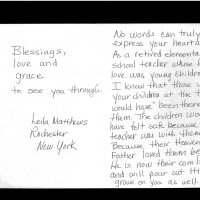 Blessings,
love and
grace
to see you through.
Leila Matthews
Rochester
New York
No words can truly
express your hearta
As a retired elementa
school teacher whose
love was young children
I know that those
your children at the
would have been there
them. The children wou
have felt safe because
teacher was with them
Because their Heaven
Father loved them be
He is now their comfo
and will pour out Hi
grace on you as well.